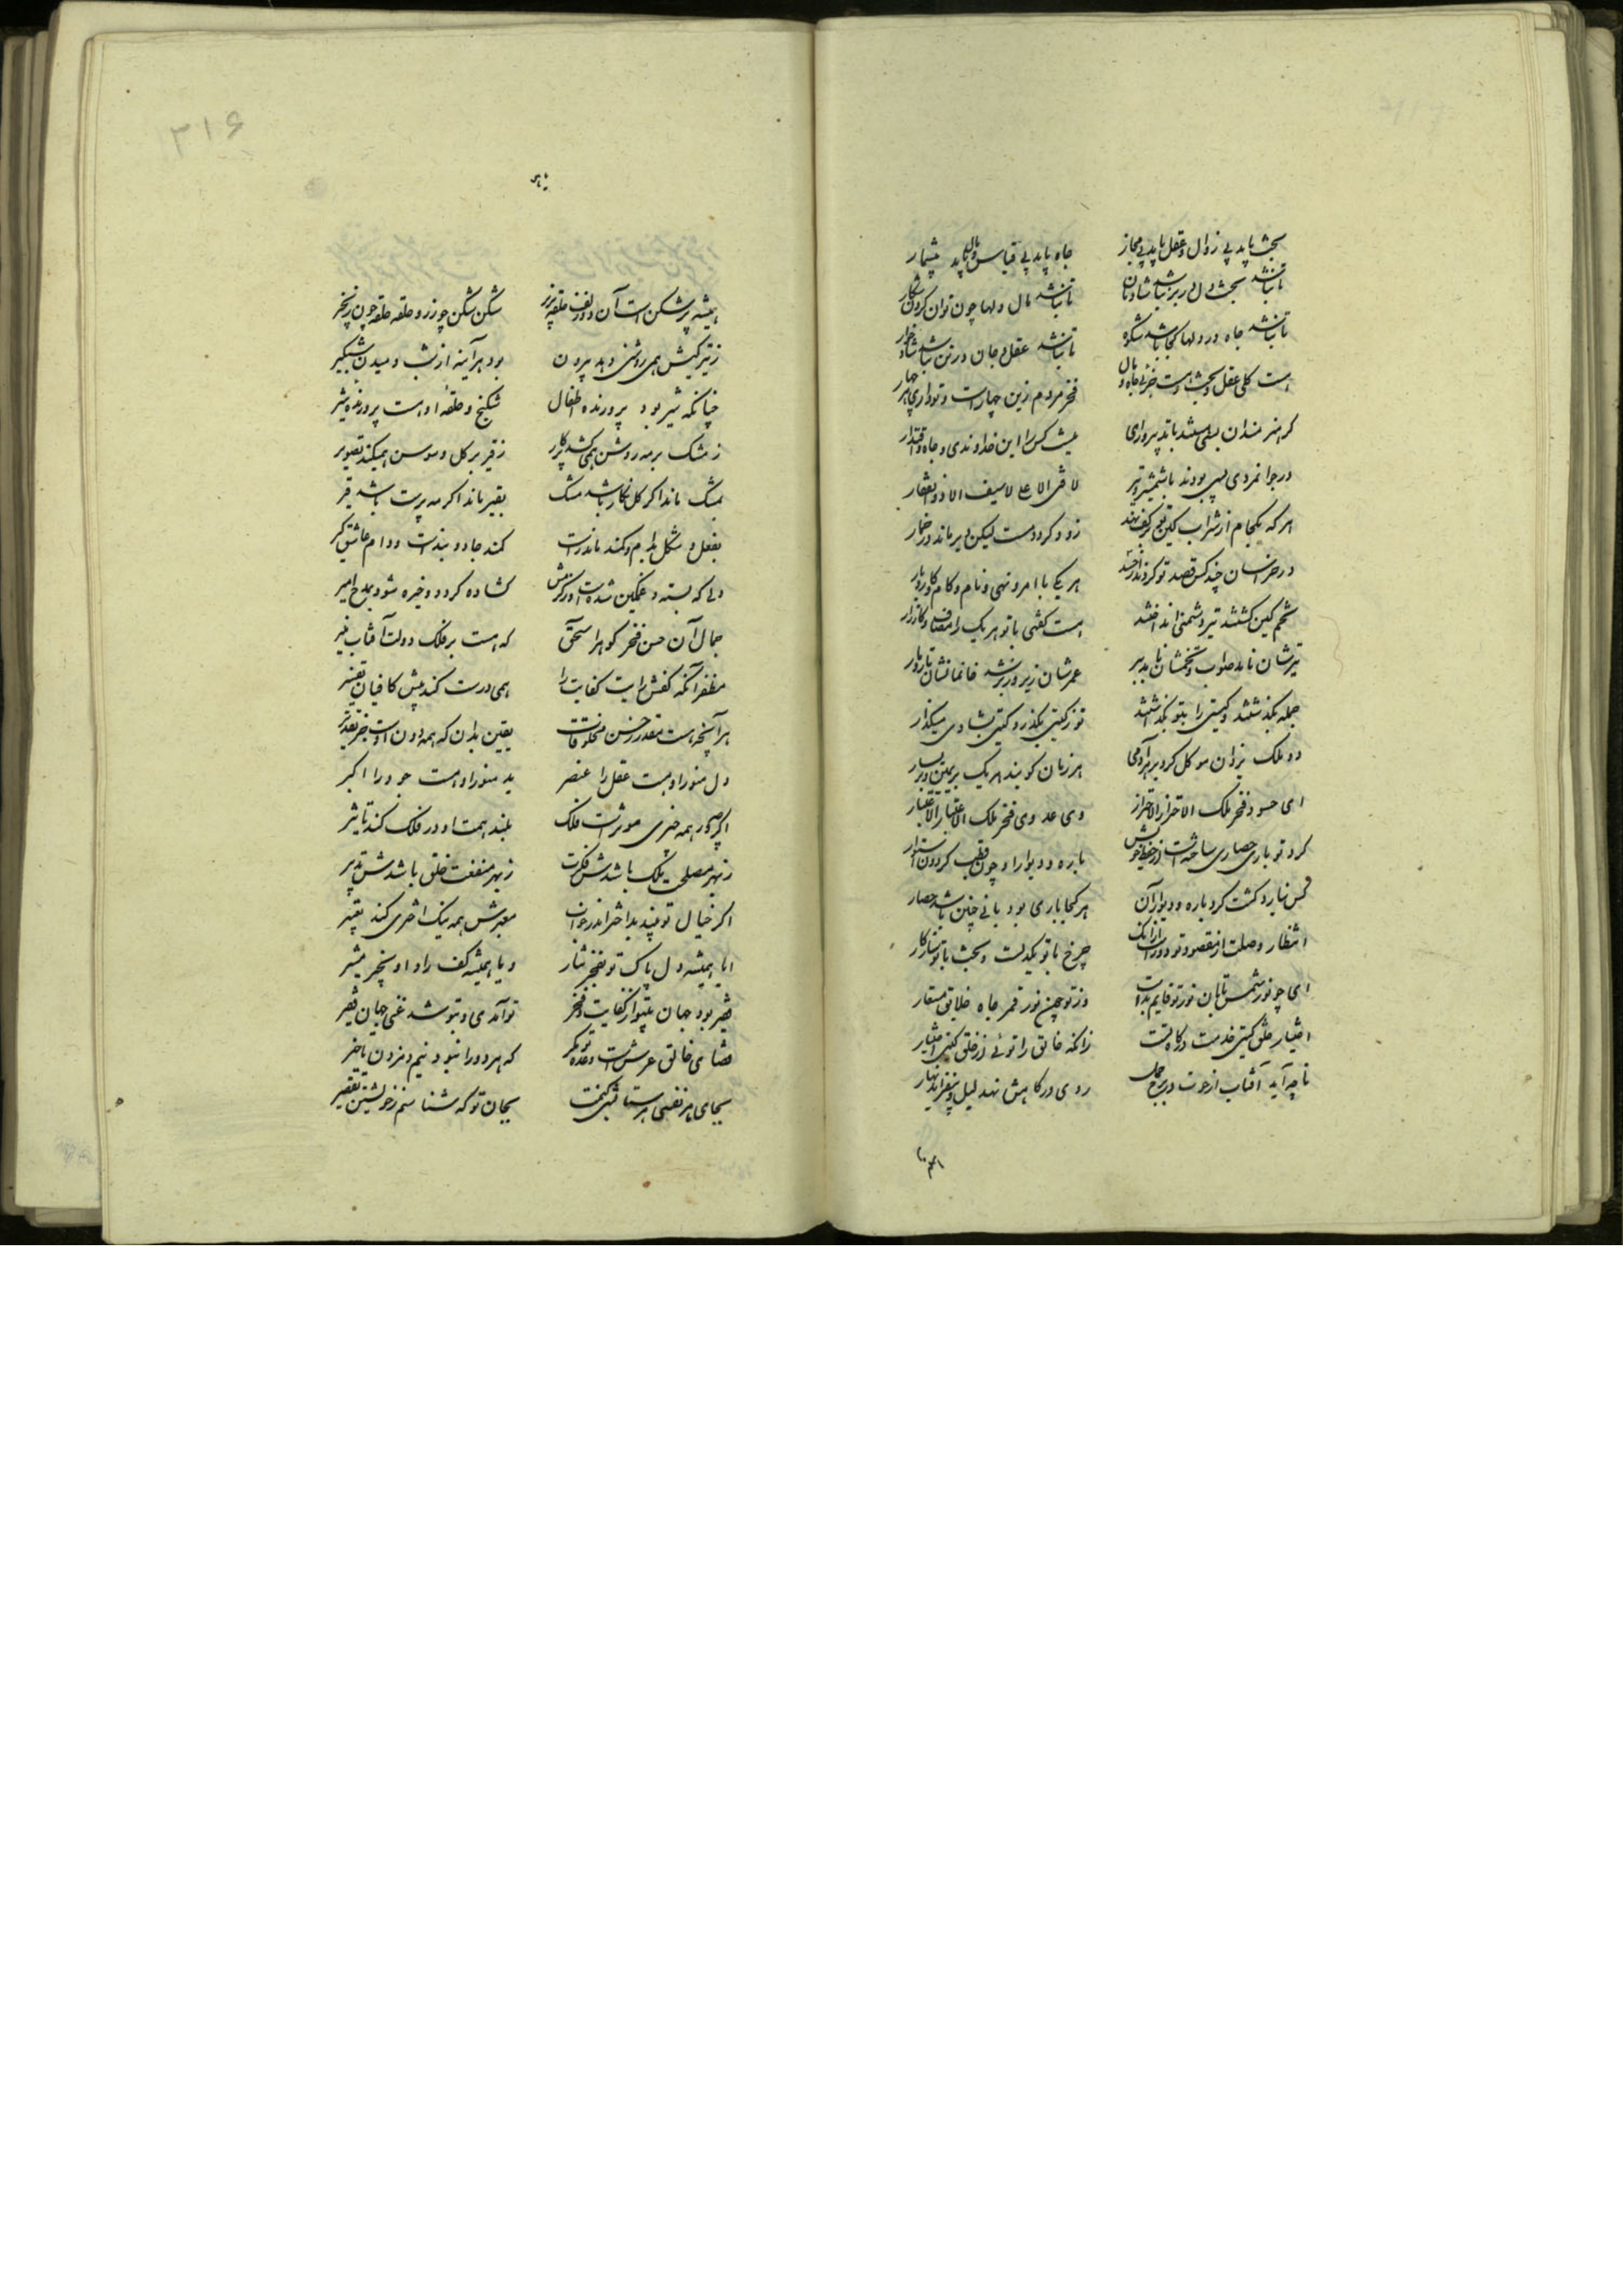 بخت باید بی زوال و عقل باید بی مجاز جاه باید بی قیاس و مال باید بیشمار
تا نباشد بخت دل در بر نباشد شادمان تا نباشد مال دلها چون توان کردن شکار
تا نباشد جاه در دلها کجا باشد شکوه تا نباشد عقل جان در تن نباشد شادخوار
هست کلی عقل و بخت و هست جزئی جاه و مال فخر مردم زین چهار است و تو داری هر چهار
گر هنرمندان بسی باشند با تدبیر و رای نیست کس را این خداوندی و جاه و اقتدار
در جوانمردی بسی بودند با شمشیر و تیر لا فتی الا علی لا سیف الا ذوالفقار
هر که یکجام از شراب کین تو بر کف نهد زود گردد مست لیکن دیر ماند در خمار
در خراسان چند کس قصد تو کردند هر یکی با امر و نهی و نام و کام و کار و بار
تخم کین کشتند تیر دشمنی انداختند هست گفتی با تو هر یک را مصاف و کارزار
تیرشان نامد صواب و تخمشان نامد ببر عمرشان زیر و زبر شد خانمانشان تار و مار
جمله بگذشتند و گیتی را بتو بگذاشتند تو ز گیتی بگذر و گیتی بشادی میگذار
دو ملک یزدان موکل کرد بر هر آدمی هر زمان گویند هر یک بر یمین و بر یسار
ای حسود فخر ملک الاحتراز الاحتراز وی عدوی فخر ملک الاعتبار الاعتبار
گرد تو باری حصاری ساخته است از حفظ خویش باره و دیوار او چون قطب گردون استوار
کس نیارد گشت گرد باره و دیوار آن هر کجا باری بود بانی چنین باشد حصار
انتظار وصلت از مقصود تو دور است از آنک چرخ با تو یکدلست و بخت با تو سازگار
ای چو نور شمس تابان نور تو قایم بذات وز تو چون نور قمر جاه خلایق مستعار
اختیار خلق گیتی خدمت درگاه تست زانکه خالق را توئی از خلق گیتی اختیار
تا چو آید آفتاب از حوت در برج حمل روی در کاهش نهد لیل و بیفزاید نهار
همیشه پر شکن است آن دو زلف حلقه پذیر شکن شکن چو زره حلقه حلقه چون زنجیر
ز تیرگیش همی روشنی دهد بیرون بود هر آینه از شب دمیدن شبگیر
چنانکه شیر بود پرورنده اطفال شکنج و حلقه او هست پرورنده شیر
ز مشک بر مه روشن همی کشد پرگار ز قیر بر گل و سوسن همیکند تصویر
بمشک ماند اگر گل نگار باشد مشک بقیر ماند اگر مه پرست باشد قیر
بفعل و شکل بدام و کمند ماند راست کمند جادو بندست و دام عاشق گیر
دلی که بسته و غمگین شدست گشاده گردد و خیره شود بمدح امیر
جمال آن حسن فخر گوهر اسحق که هست بر فلک دولت آفتاب منیر
مظفر آنکه کفش رایت کفایت را همی درست کند پیش کافیان تفسیر
هر آنچه هست مقدر ز حسن مخلوقات یقین بدان که همه دون اوست جز تقدیر
دل منور او هست عقل را عنصر ید منور او هست جود را اکسیر
اگرچه در همه چیزی موثر است فلک بلند همت او در فلک کند تاثیر
ز بهر مصلحت ملک باشدش فکرت ز بهر منفعت خلق باشدش تدبیر
اگر خیال تو بیند بد اختر اندر خواب معبرش همه نیک اختری کند تعبیر
ایا همیشه دل پاک تو بفخر مشار و یا همیشه کف راد او بخیر مشیر
فقیر بود جهان بیتو از کفایت و فخر تو آمدی و بتو شد غنی جهان فقیر
ثنای خالق عرش است و وعده تو مگر که هر دو را نبود نیم دم زدن تاخیر
بجای هر نفسی هر ستایشی که کنمت بجان تو که شناسم ز خویشتن تقصیر